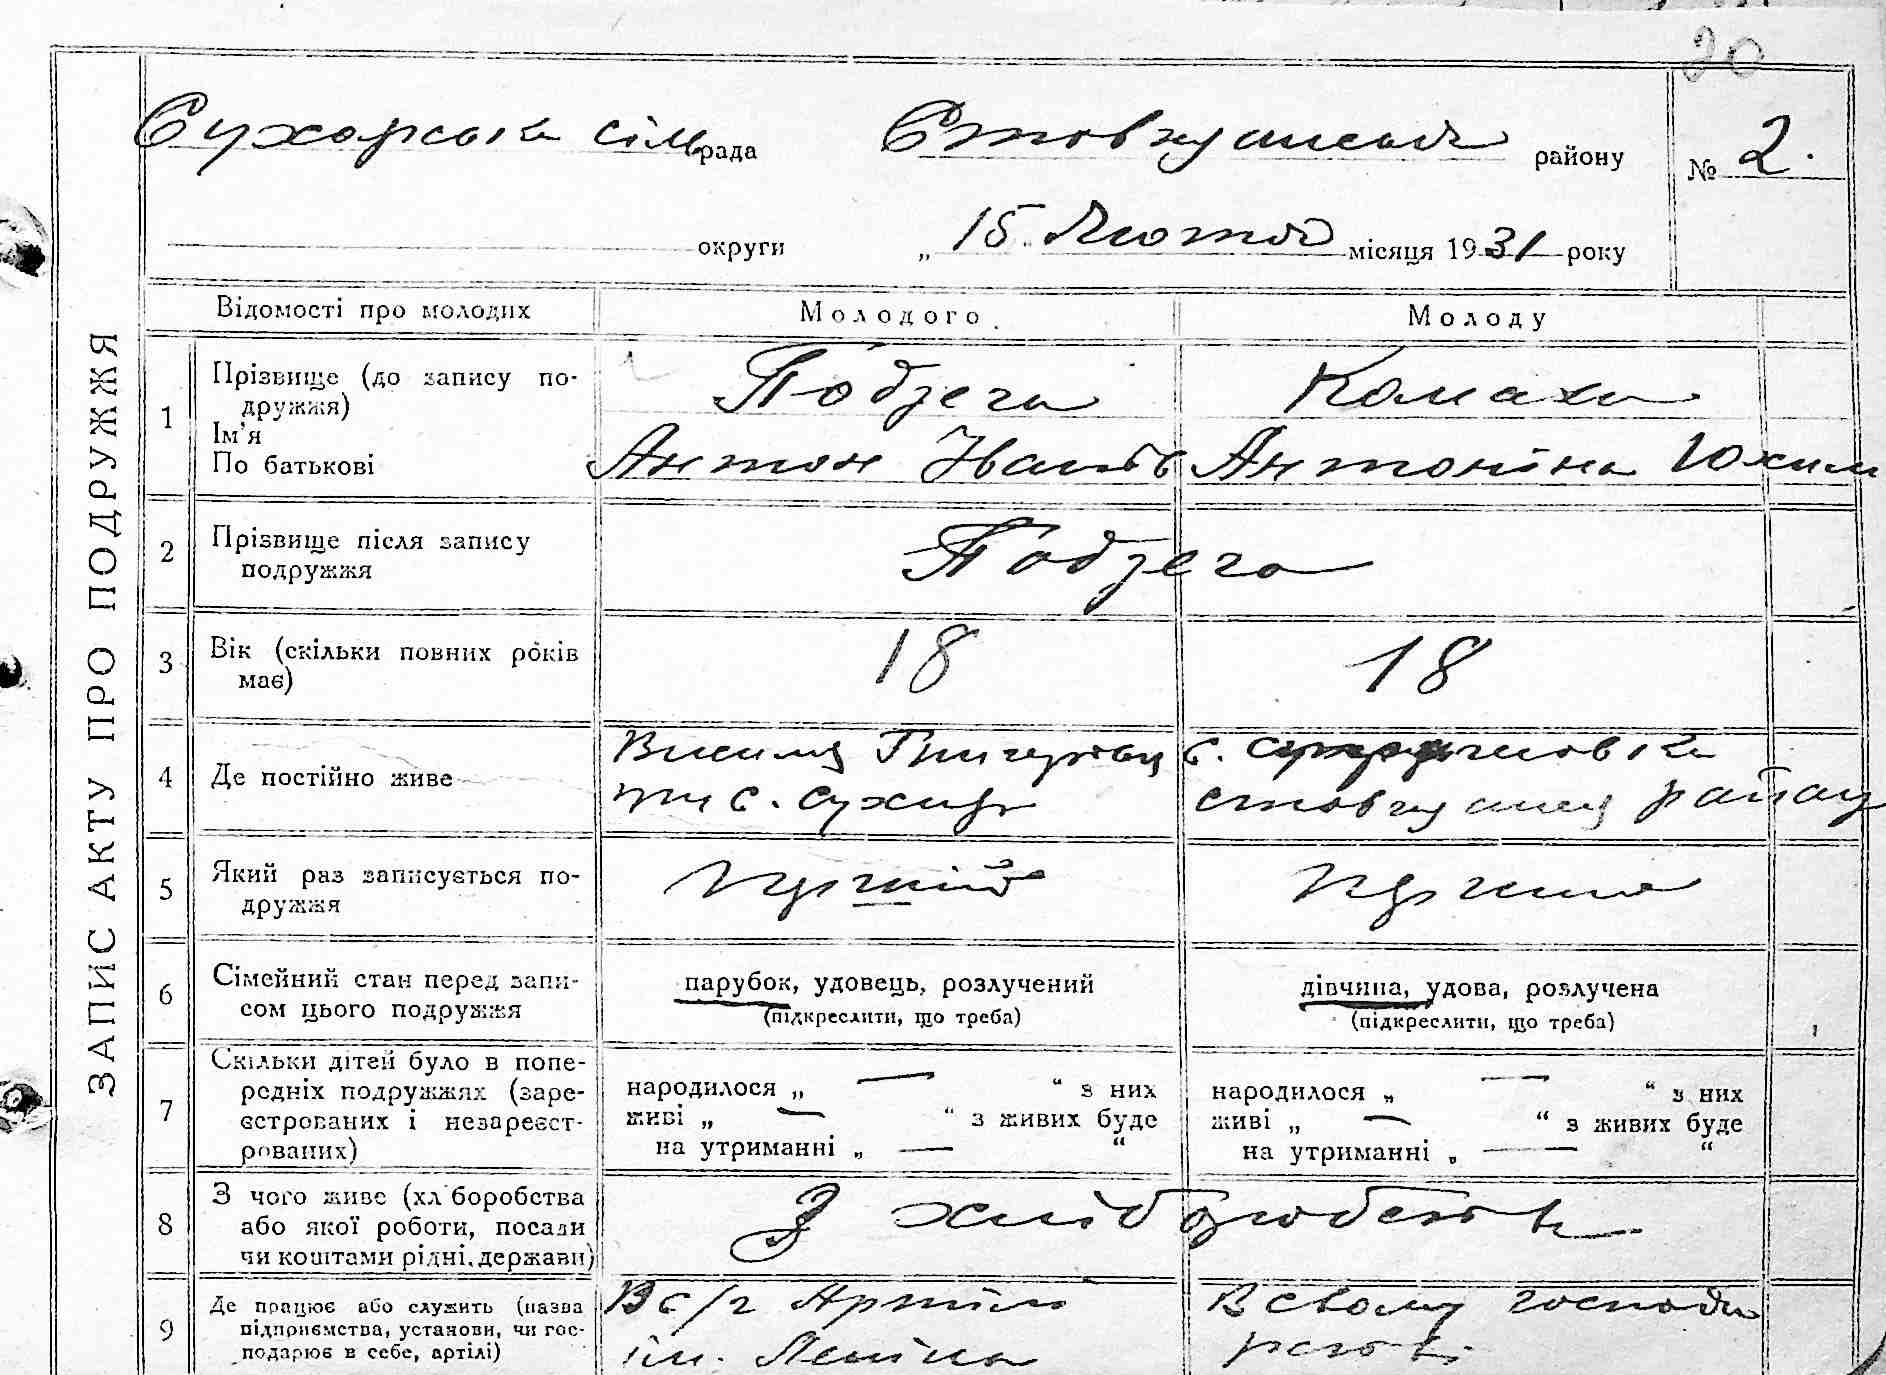 20
Сухарська сільрада Стовкуциська району № 2.
округи „ 15 Лютого місяця 1931 року
ЗАПИС АКТУ ПРО ПОДРУЖЖЯ
Відомості про молодих Молодого Молоду
1 Прізвище (до запису по-
дружжя) Подзега Камаха
Ім'я
По батькові Антон Іванів Антоніна Юхим
2 Прізвище після запису
подружжя Подзега
3 Вік (скільки повних років
має) 18 18
4 Де постійно живе
с. Сухар с. району
5 Який раз записується по-
дружжя перший перша
6 Сімейний стан перед запи-
сом цього подружжя
парубок, удовець, розлучений дівчина, удова, розлучена
(підкреслити, що треба) (підкреслити, що треба)
7 Скільки дітей було в попе-
редніх подружжях (заре-
єстрованих і незареєст-
рованих)
народилося „ — “ з них народилося „ — “ з них
живі „ — “ з живих буде живі „ — “ з живих буде
на утриманні „ — “ на утриманні „ — “
8 З чого живе (хліборобства
або якої роботи, посади
чи коштами рідні, держави)
З хліборобства
9 Де працює або служить (назва
підприємства, установи, чи гос-
подарює в себе, артілі)
В с/г Артілі В свому господа
ім. Леніна рстві